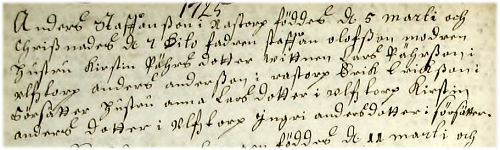 1725
Anders Staffansson i Rastorp föddes d 5 marti och
Christnades d 7 Dito fadren staffan olofsson modren
Hustru Kirstin Påhrs dotter wittnen Lars Påhrsson i
Ulfstorp anders andersson i rastorp Erik Eriksson i
Sörsätter Hustru anna Lars dotter i Ulfstorp Kirstin
anders dotter i Ulfstorp Yngri andersdotter i sörsätter.
föddes d 11 marti och